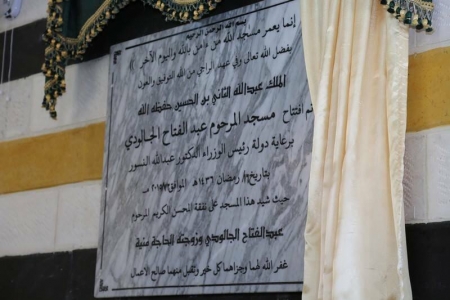 بسم الله الرحمن الرحيم
إنما يعمر مساجد الله من آمن بالله واليوم الآخر
بفضل الله تعالى وفي عهد الراجي من الله التوفيق والعون
الملك عبدالله الثاني بن الحسين حفظه الله
تم افتتاح مسجد المرحوم عبد الفتاح الجالودي
برعاية دولة رئيس الوزراء الدكتور عبدالله النسور
بتاريخ رمضان ١٤٣٦هـ الموافق
حيث شيد هذا المسجد على نفقة المحسن الكريم المرحوم
عبدالفتاح الجالودي وزوجته الحاجة منية
غفر الله لهما وجزاهما كل خير وتقبل منهما صالح الأعمال